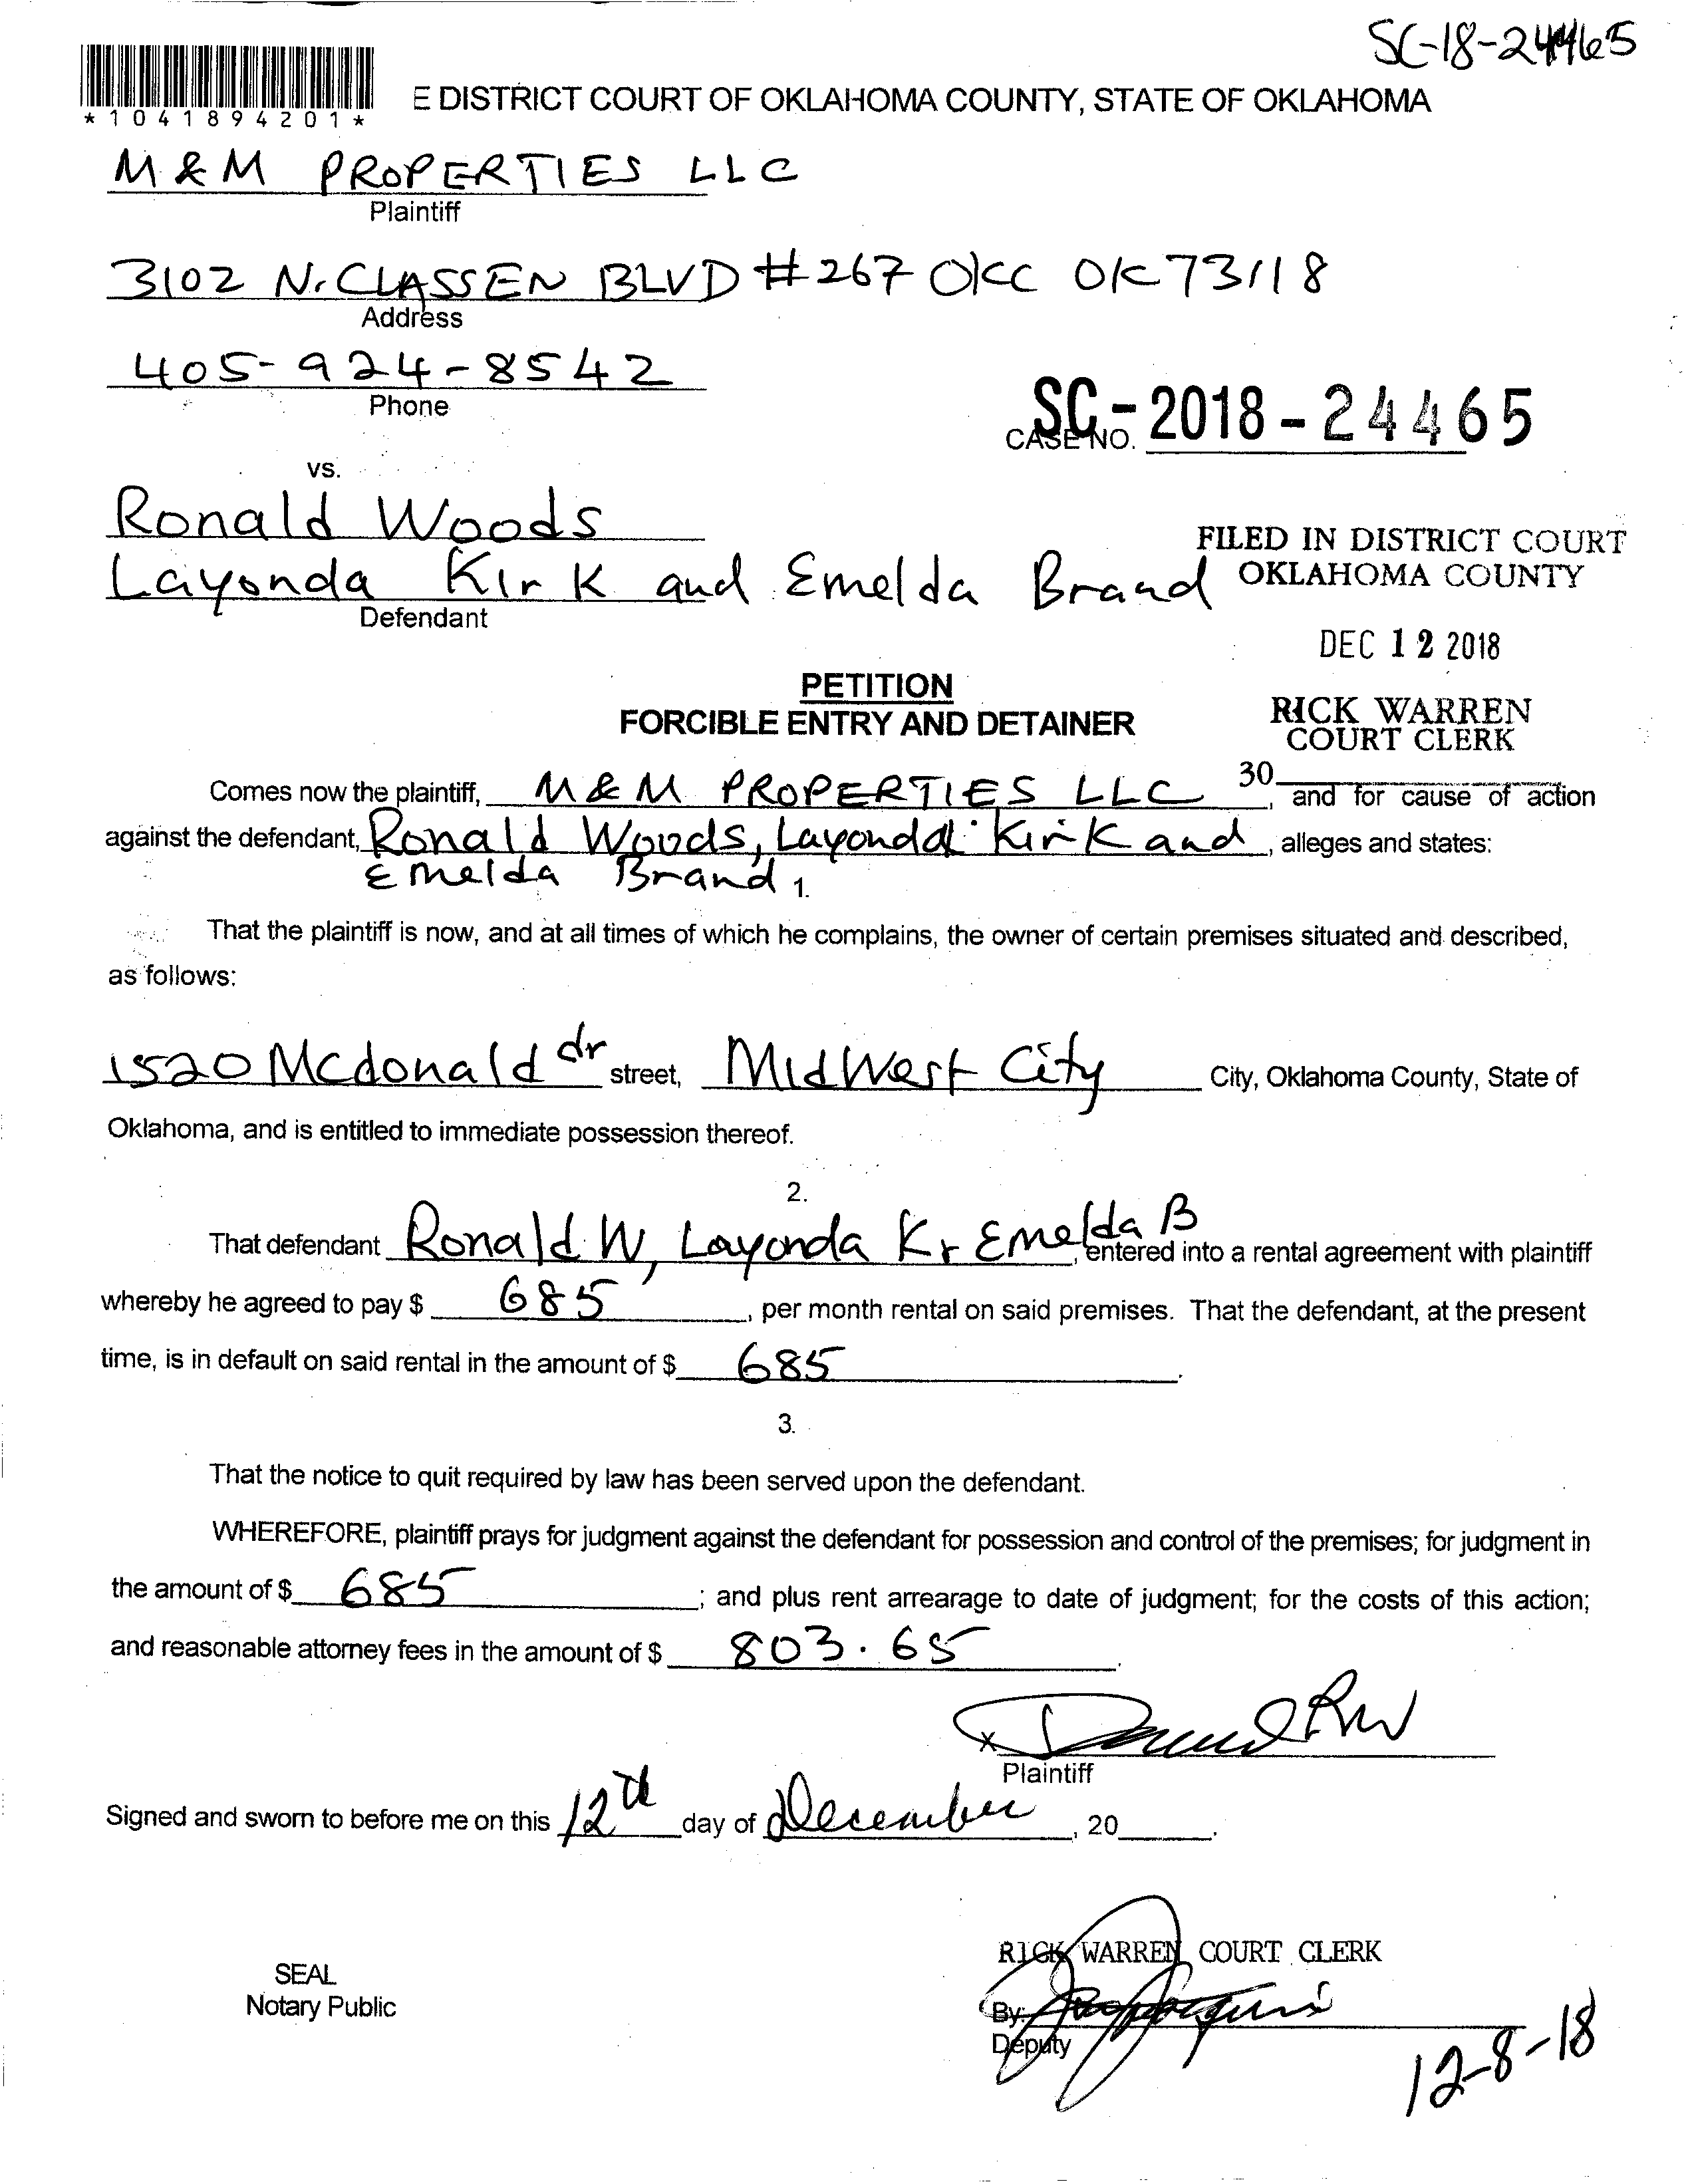 SC-18-24465
*1041894201*
E DISTRICT COURT OF OKLAHOMA COUNTY, STATE OF OKLAHOMA
M & M PROPERTIES LLC
Plaintiff
3102 N. CLASSEN BLVD #267 OKC OK 73118
Address
405-924-8542
Phone
SC-2018-24465
CASE NO.
vs.
Ronald Woods
Layonda Kirk and Emelda Brand
Defendant
FILED IN DISTRICT COURT
OKLAHOMA COUNTY
DEC 12 2018
RICK WARREN
COURT CLERK
30
PETITION
FORCIBLE ENTRY AND DETAINER
Comes now the plaintiff, M & M PROPERTIES LLC, and for cause of action
against the defendant, Ronald Woods, Layonda Kirk and, alleges and states:
Emelda Brand
1.
That the plaintiff is now, and at all times of which he complains, the owner of certain premises situated and described,
as follows:
1520 Mcdonald dr street, MidWest City City, Oklahoma County, State of
Oklahoma, and is entitled to immediate possession thereof.
2.
That defendant Ronald W, Layonda K, Emelda B, entered into a rental agreement with plaintiff
whereby he agreed to pay $ 685, per month rental on said premises. That the defendant, at the present
time, is in default on said rental in the amount of $ 685.
3.
That the notice to quit required by law has been served upon the defendant.
WHEREFORE, plaintiff prays for judgment against the defendant for possession and control of the premises; for judgment in
the amount of $ 685; and plus rent arrearage to date of judgment; for the costs of this action;
and reasonable attorney fees in the amount of $ 803.65.
x
Plaintiff
Signed and sworn to before me on this 12th day of December, 20.
RICK WARREN COURT CLERK
SEAL
Notary Public
By:
Deputy
12-8-18